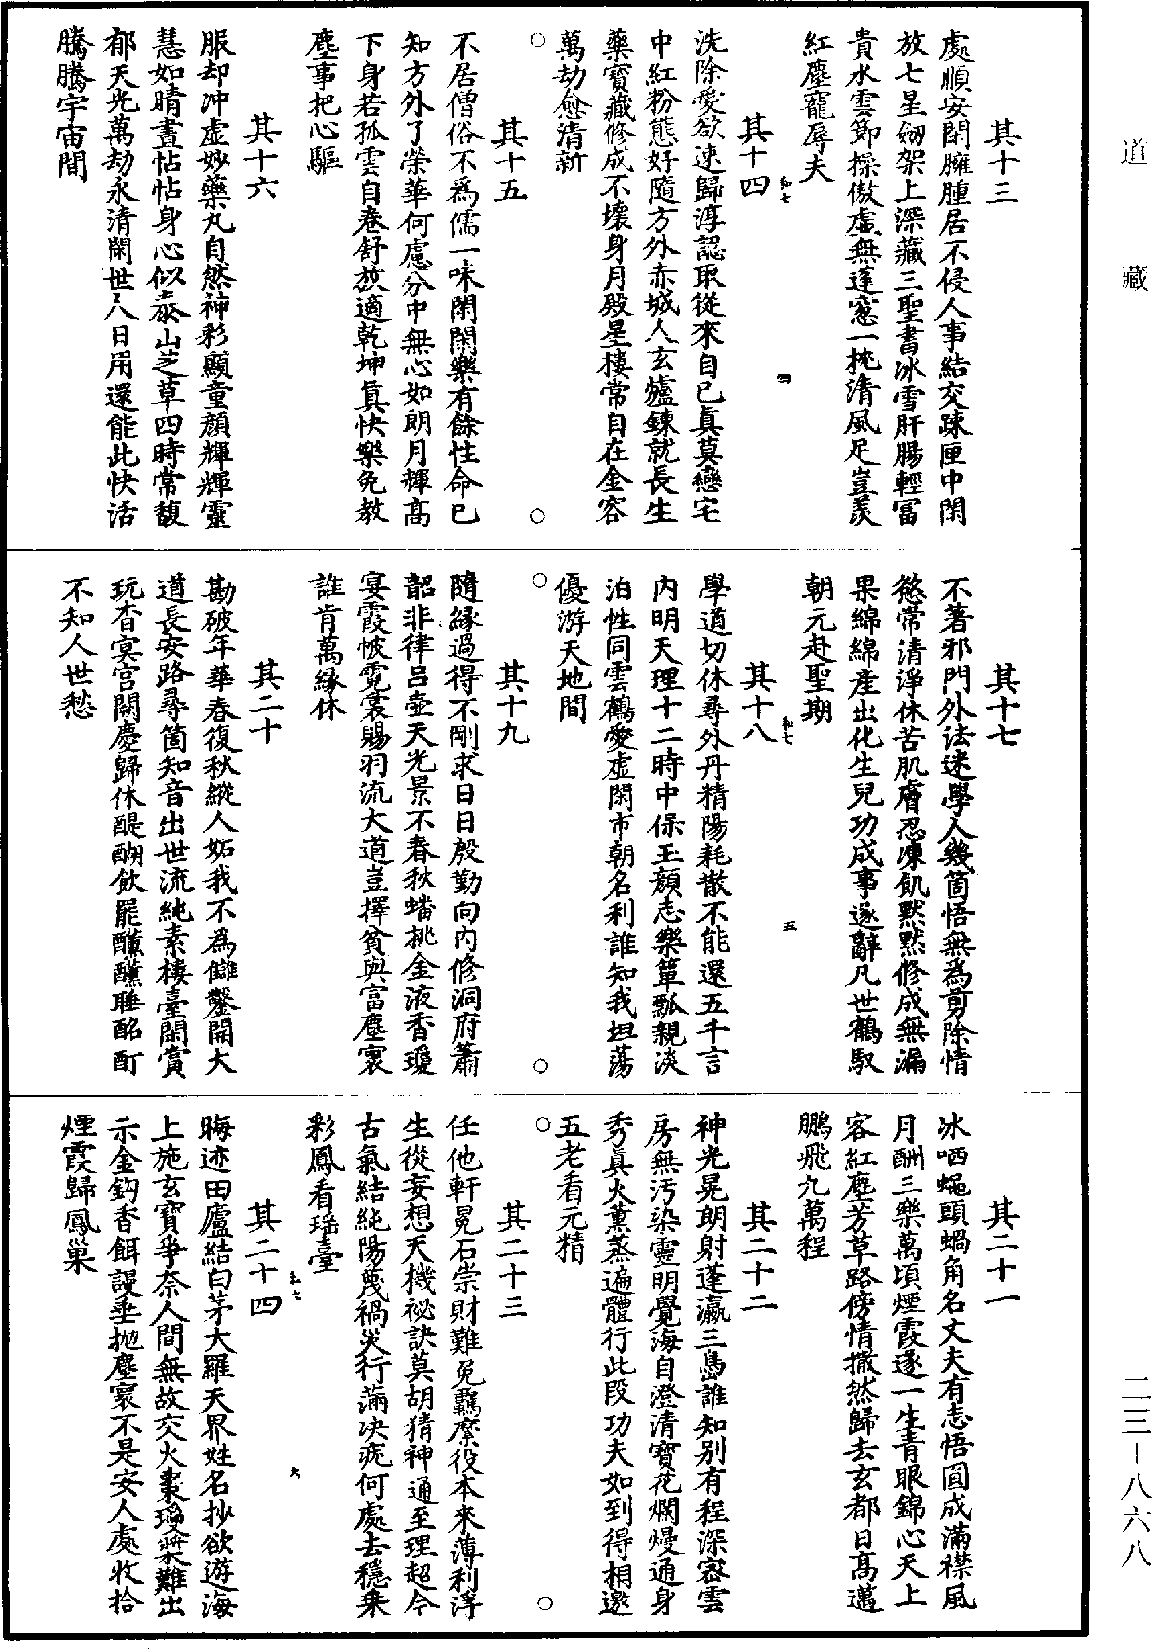 道藏
其十三
處順安閑臃腫居不侵人事結交踈匣中閑
放七星劒架上深藏三聖書冰雪肝腸輕富
貴水雲節操傲虛無蓬窓一枕清風足豈羨
紅塵寵辱夫
其十四
洗除愛欲速歸淳認取從來自己真莫戀宅
中紅粉態好隨方外赤城人玄爐鍊就長生
藥寶藏修成不壞身月殿星樓常自在金容
萬劫愈清新
其十五
不居僧俗不爲儒一味閑閑樂有餘性命已
知方外了榮華何慮分中無心如朗月輝高
下身若孤雲自卷舒放適乾坤真快樂免教
塵事把心驅
其十六
服却冲虚妙藥丸自然神彩顯童顏輝輝靈
慧如晴晝帖帖身心似泰山芝草四時常馥
郁天光萬劫永清閑世人日用還能此快活
騰騰宇宙間
其十七
不著邪門外法迷學人幾箇悟無爲剪除情
慾常清淨休苦肌膚忍凍飢默默修成無漏
果綿綿產出化生兒功成事遂辭凡世鶴馭
朝元赴聖期
其十八
學道切休尋外丹精陽耗散不能還五千言
內明天理十二時中保玉顏志樂簞瓢親淡
泊性同雲鶴愛虛閑市朝名利誰知我坦蕩
優游天地間
其十九
隨緣過得不剛求日日殷勤向內修洞府簫
韶非律呂壺天光景不春秋蟠桃金液香瓊
宴霞帔霓裳賜羽流大道豈擇貧與富塵寰
誰肯萬緣休
其二十
勘破年華春復秋縱人妬我不為讎鑿開大
道長安路尋箇知音出世流純素樓臺閑賞
玩杳冥宮闕慶歸休醍醐飲罷醺醺睡酩酊
不知人世愁
其二十一
冰哂蠅頭蝸角名丈夫有志悟圓成滿襟風
月酬三樂萬頃煙霞遂一生青眼錦心天上
客紅塵芳草路傍情撒然歸去玄都日高邁
鵬飛九萬程
其二十二
神光晃朗射蓬瀛三島誰知別有程深密雲
房無污染靈明覺海自澄清寶花爛熳通身
秀真火薰蒸遍體行此段功夫如到得相邀
五老看元精
其二十三
任他軒冕石崇財難免羈縻役本來薄利浮
生從妄想天機祕訣莫胡猜神通至理超今
古氣結純陽蔑禍災行滿决疣何處去穩乗
彩鳳看瑶臺
其二十四
晦迹田廬結白茅大羅天界姓名抄欲遊海
上施玄寶爭奈人間無故交火棗瓊漿難出
示金鈎香餌謾垂抛塵寰不是安人處收拾
煙霞歸鳳巢
二三－八六八